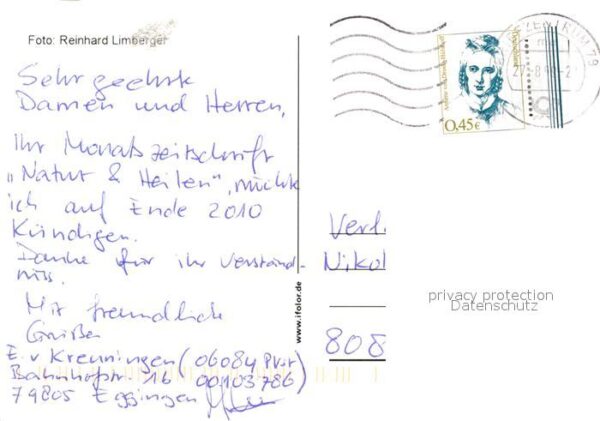 Foto: Reinhard Limberger
Sehr geehrte
Damen und Herren,
Ihr Monatszeitschrift
"Natur & Heilen", möchte
ich auf Ende 2010
Kündigen.
Danke für ihr Verständ-
nis.
Mit freundliche
Grüßen
E. v Krenningen (06084
Bahnhofstr. 16 00103786)
79805 Eggingen
www.ifolor.de
0,45€
ZENTRUM 79
Verl.
Nikol
808
privacy protection
Datenschutz